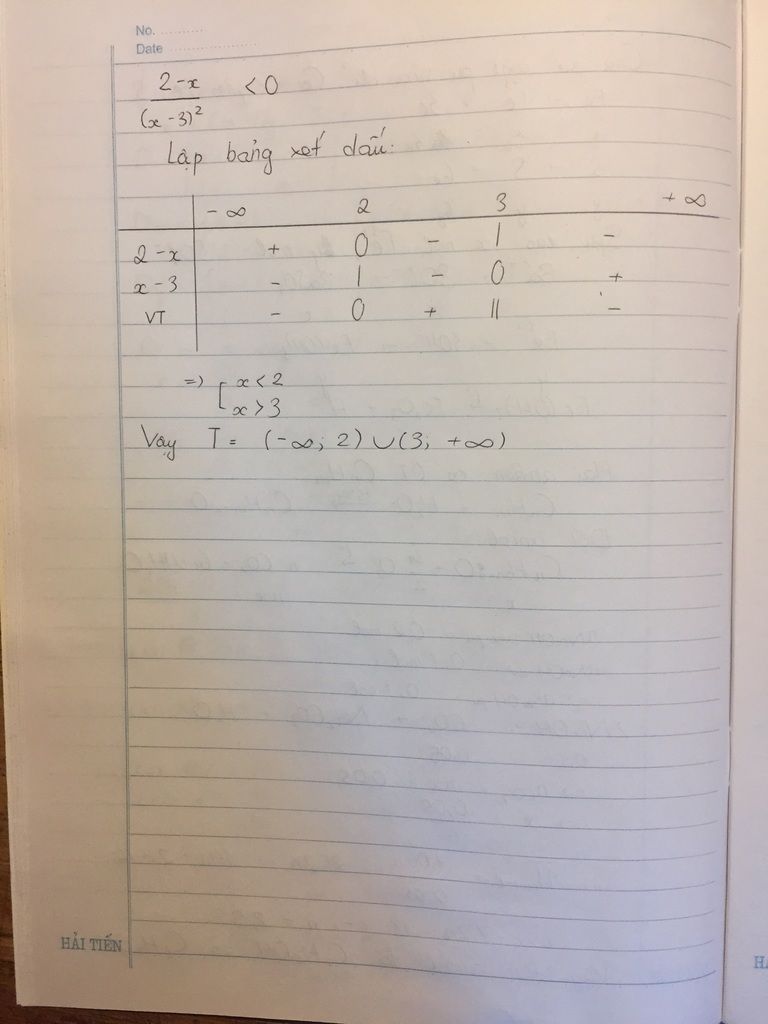 No. ..........
Date ....................
2-x / (x-3)² < 0
Lập bảng xét dấu:
-∞ 2 3 +∞
2-x + 0 - | -
x-3 - | - 0 +
VT - 0 + || -
=> [ x<2
x>3
Vậy T = (-∞; 2) ∪ (3; +∞)
HẢI TIẾN